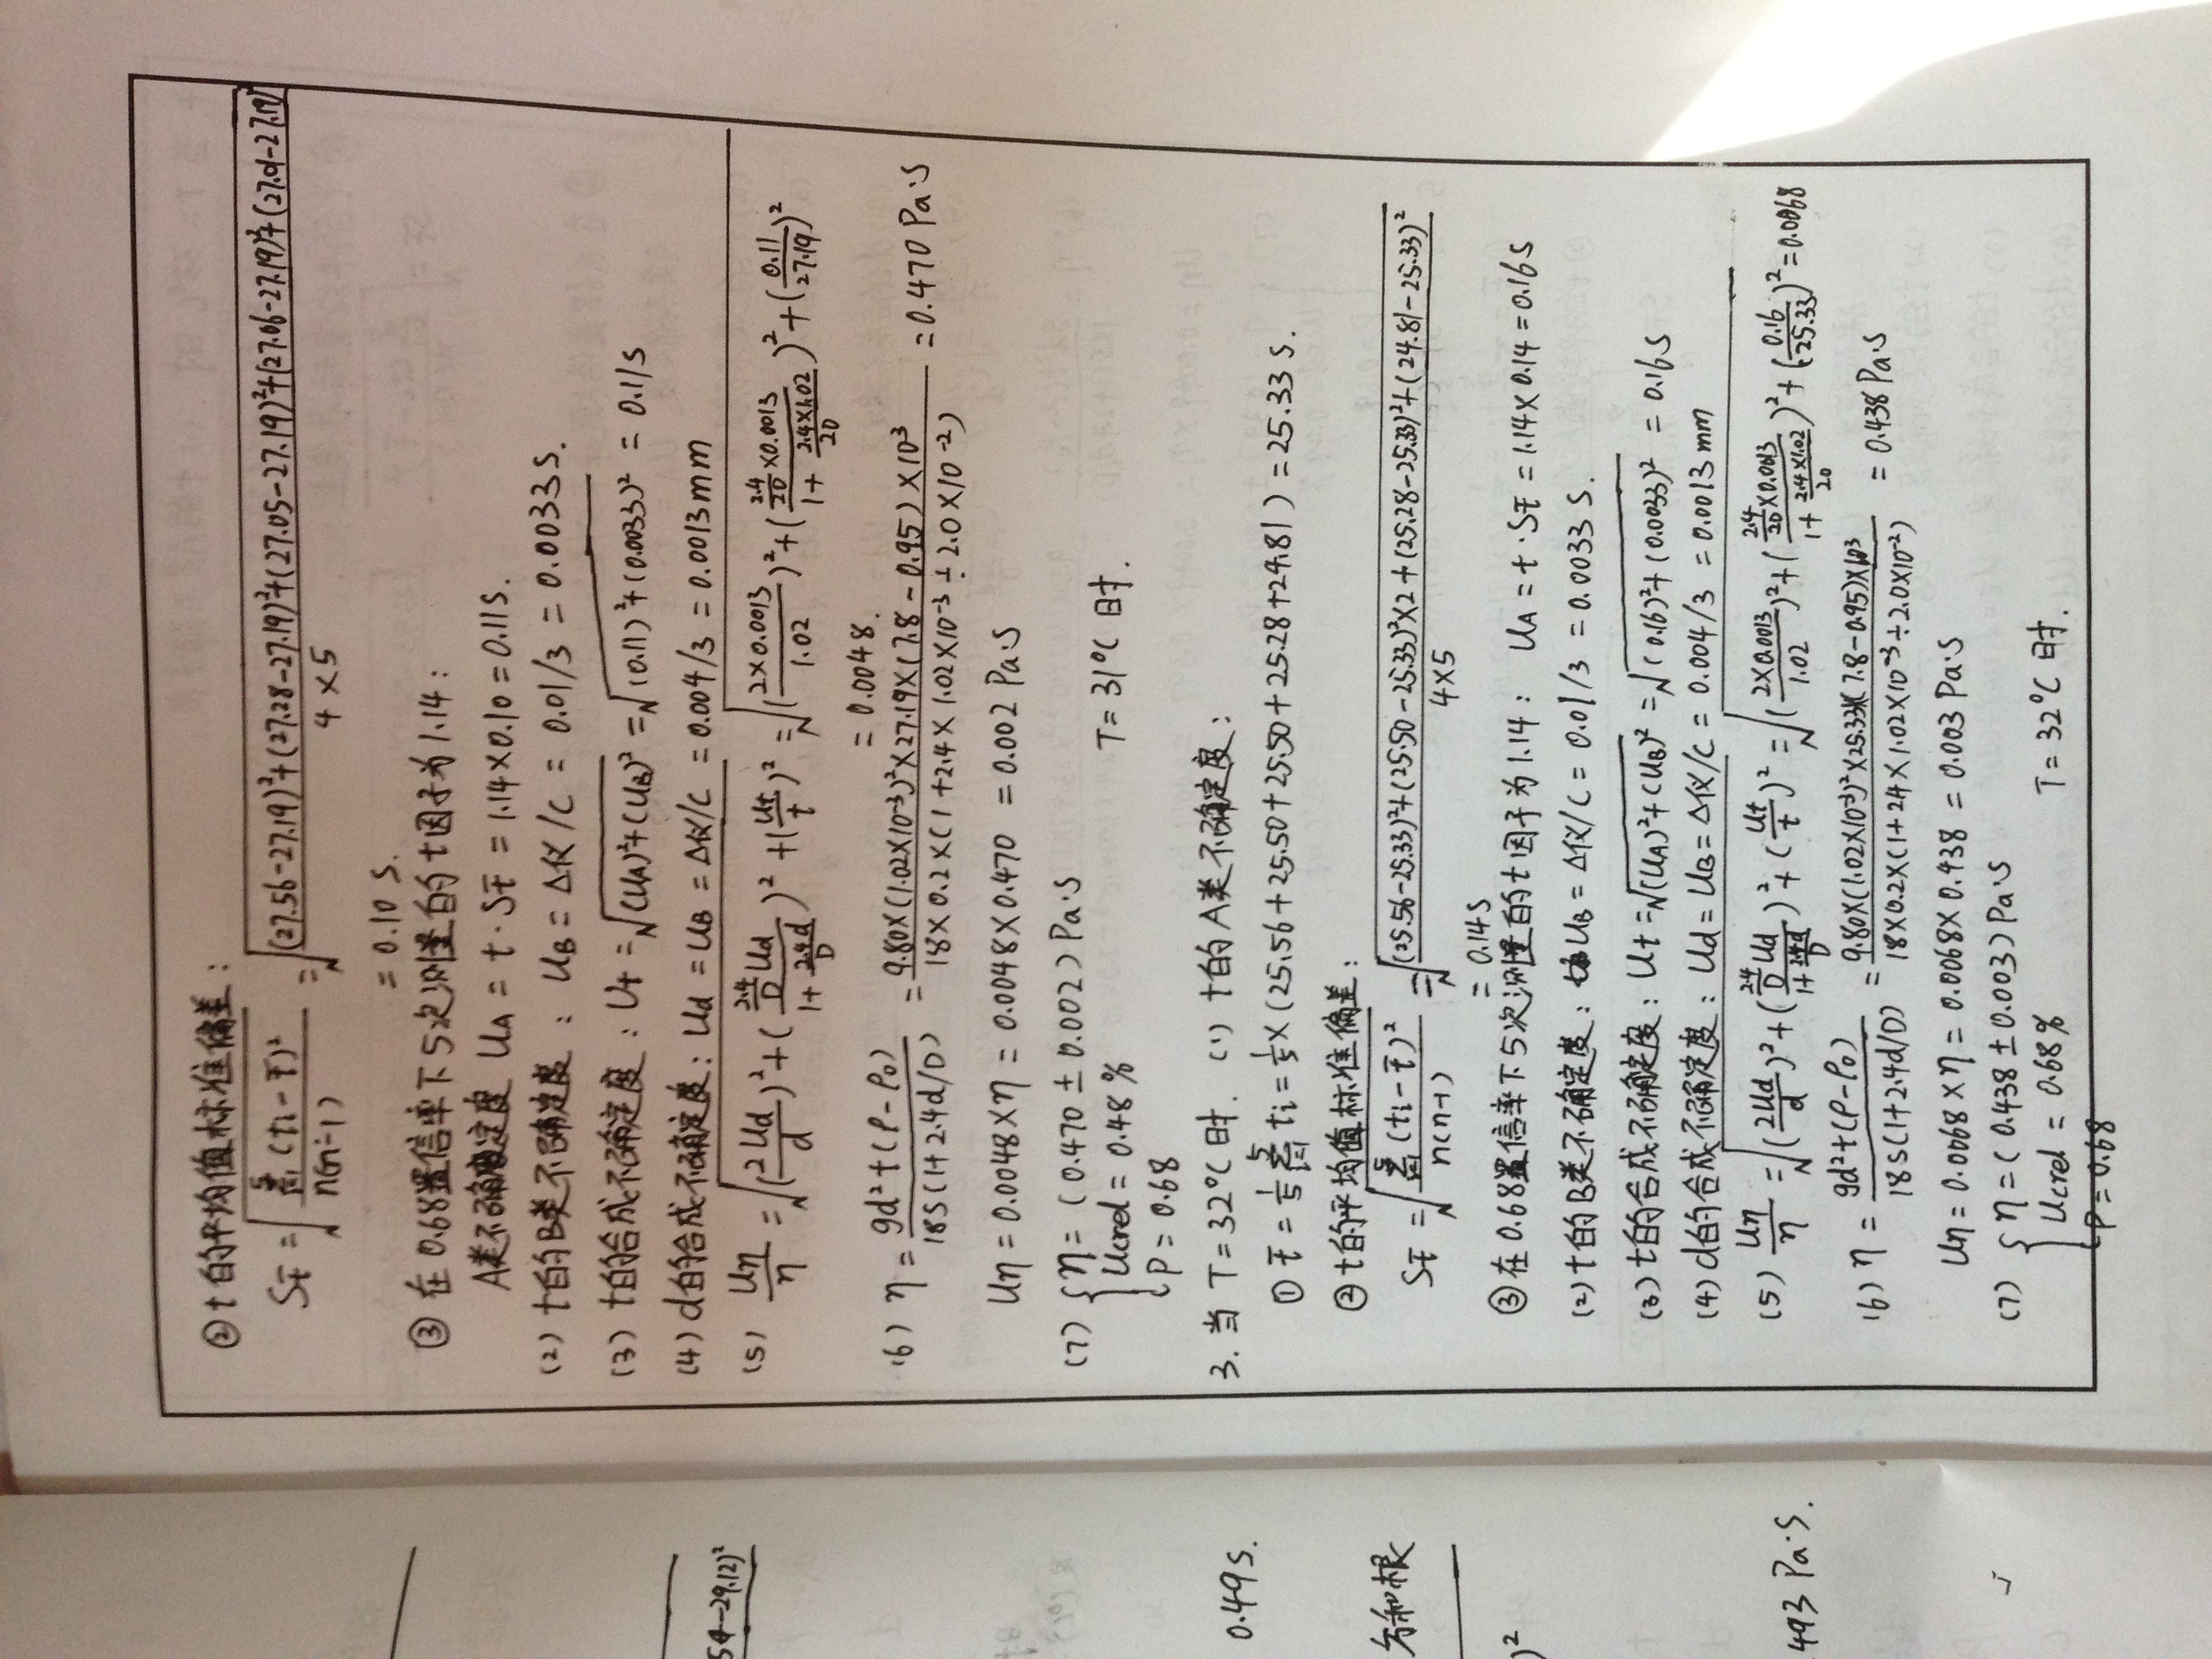 54-29.12)²
0.49s.
方和根
)²
.493 Pa·S.
② t的平均值标准偏差:
St̄ = √(Σ(ti-t̄)²/n(n-1)) = √((27.56-27.19)²+(27.28-27.19)²+(27.05-27.19)²+(27.06-27.19)²+(27.01-27.19)²/4×5)
= 0.10 S.
③ 在0.68置信率下5次测量的t因子为1.14:
A类不确定度 UA = t·St̄ = 1.14×0.10 = 0.11S.
(2) t的B类不确定度: UB = Δ仪/C = 0.01/3 = 0.0033S.
(3) t的合成不确定度: Ut = √((UA)²+(UB)²) = √((0.11)²+(0.0033)²) = 0.11S
(4) d的合成不确定度: Ud = UB = Δ仪/C = 0.004/3 = 0.0013mm
(5) Uη/η = √((2Ud/d)²+(2.4/D Ud/1+2.4d/D)²+(Ut/t)²) = √((2×0.0013/1.02)²+(2.4/20×0.0013/1+2.4×1.02/20)²+(0.11/27.19)²)
= 0.0048.
(6) η = gd²t(ρ-ρ₀)/18S(1+2.4d/D) = 9.80×(1.02×10⁻³)²×27.19×(7.8-0.95)×10³/18×0.2×(1+2.4×1.02×10⁻³÷2.0×10⁻²) = 0.470 Pa·S
Uη = 0.0048×η = 0.0048×0.470 = 0.002 Pa·S
(7) { η = (0.470±0.002) Pa·S
Ucrel = 0.48% T=31°C时.
P = 0.68
3. 当T=32°C时. (1) t的A类不确定度:
① t̄ = 1/5 Σti = 1/5×(25.56+25.50+25.50+25.28+24.81) = 25.33 S.
② t的平均值标准偏差:
St̄ = √(Σ(ti-t̄)²/n(n-1)) = √((25.56-25.33)²+(25.50-25.33)²×2+(25.28-25.33)²+(24.81-25.33)²/4×5)
= 0.14S
③ 在0.68置信率下5次测量的t因子为1.14: UA = t·St̄ = 1.14×0.14 = 0.16S
(2) t的B类不确定度: UB = Δ仪/C = 0.01/3 = 0.0033 S.
(3) t的合成不确定度: Ut = √((UA)²+(UB)²) = √((0.16)²+(0.0033)²) = 0.16S
(4) d的合成不确定度: Ud = UB = Δ仪/C = 0.004/3 = 0.0013 mm
(5) Uη/η = √((2Ud/d)²+(2.4/D Ud/1+2.4d/D)²+(Ut/t)²) = √((2×0.0013/1.02)²+(2.4/20×0.0013/1+2.4×1.02/20)²+(0.16/25.33)²) = 0.0068
(6) η = gd²t(ρ-ρ₀)/18S(1+2.4d/D) = 9.80×(1.02×10⁻³)²×25.33×(7.8-0.95)×10³/18×0.2×(1+2.4×1.02×10⁻³÷2.0×10⁻²) = 0.438 Pa·S
Uη = 0.0068×η = 0.0068×0.438 = 0.003 Pa·S
(7) { η = (0.438±0.003) Pa·S
Ucrel = 0.68% T=32°C时.
P = 0.68